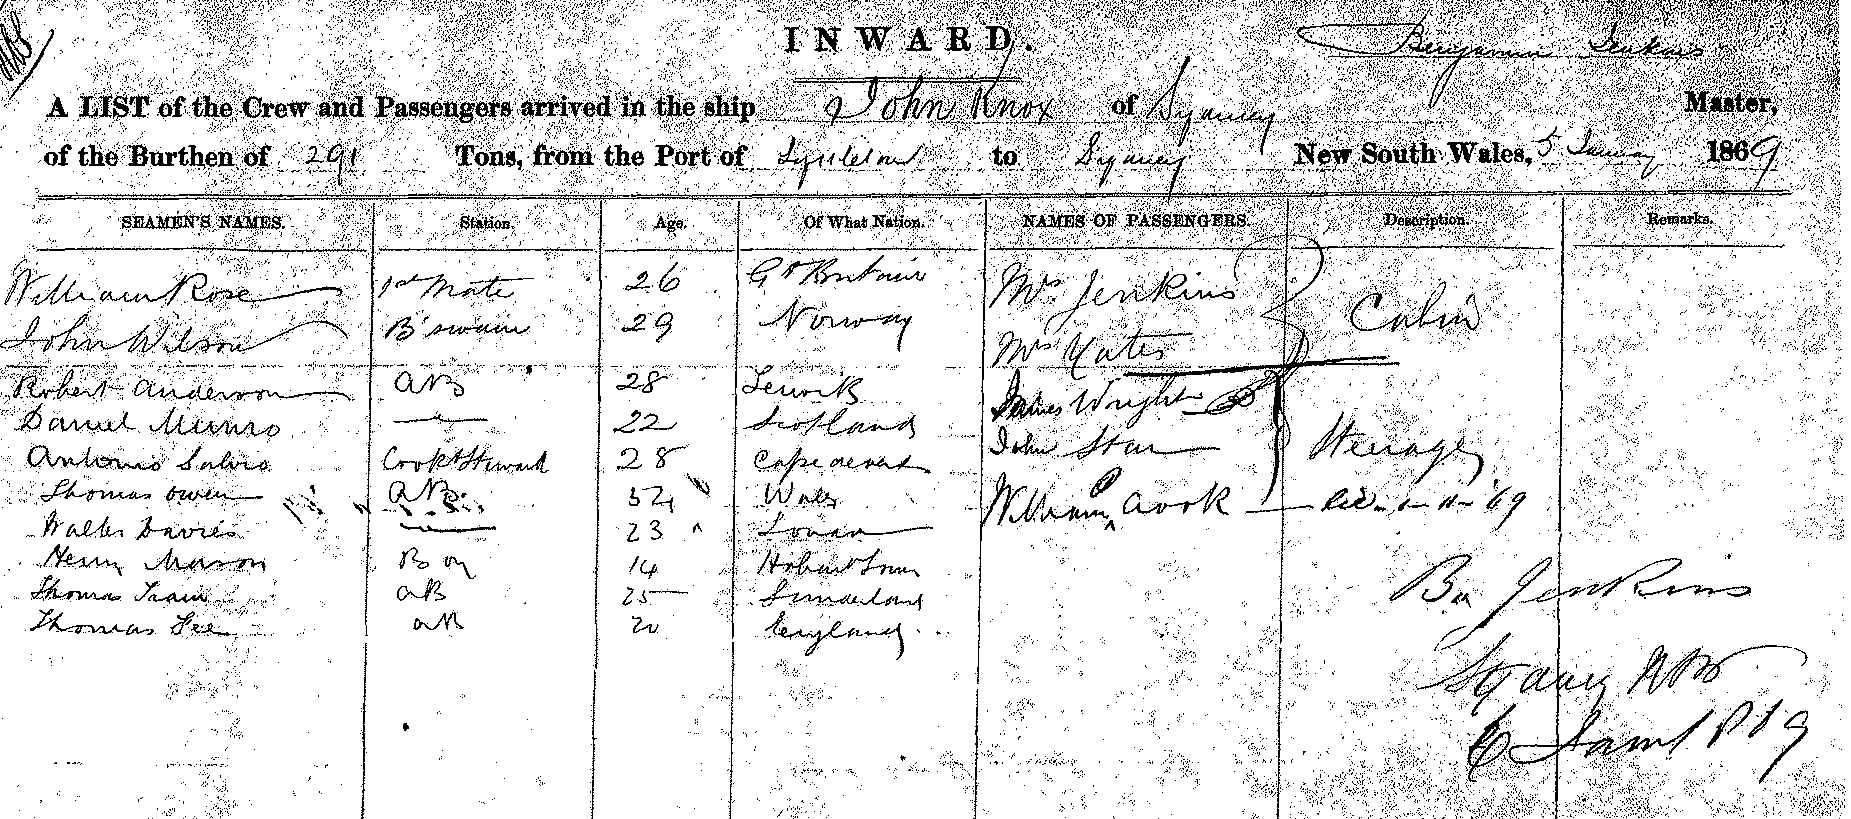 INWARD.
Benjamin Jenkins
A LIST of the Crew and Passengers arrived in the ship John Knox of Sydney Master,
of the Burthen of 291 Tons, from the Port of to Sydney New South Wales, 5 January 1869
SEAMEN'S NAMES. Station. Age. Of What Nation. NAMES OF PASSENGERS. Description. Remarks.
William Rose 1st Mate 26 Gt Britain Mrs Jenkins
John Wilson B'swain 29 Norway Mrs Yates Cabin
Robert Anderson AB 28 Lerwik James Wright
Daniel Munro 22 Scotland John Starr Steerage
Antonio Cook & Steward 28 Cape de verd
Thomas Owen AB 32 Wales William Cook
Walter Davies 23 London
Henry Mason Boy 14 Hobart Town
Thomas AB 25 Sunderland
Thomas Lee AB 20 England
Bn Jenkins
Sydney NSW